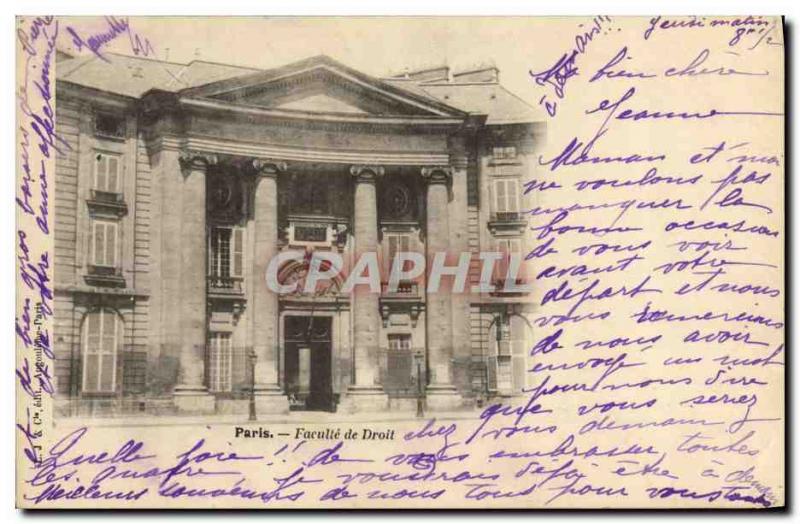 Jeudi matin
8h 1/2
Ma bien chère
Jeanne
Maman et moi
ne voulons pas
manquer la
bonne occasion
de vous voir
avant votre
départ et nous
vous remercions
de nous avoir
envoyé un mot
pour nous dire
que vous seriez
chez vous demain
Quelle joie !! de vous embrasser toutes
les quatre je voudrais déjà être à demain
Meilleurs souvenirs de nous tous pour vous toutes
et de bien gros baisers de
votre amie affectionnée
CPAPHIL
Paris. — Faculté de Droit
J & Cie, édit. Angoulême-Paris